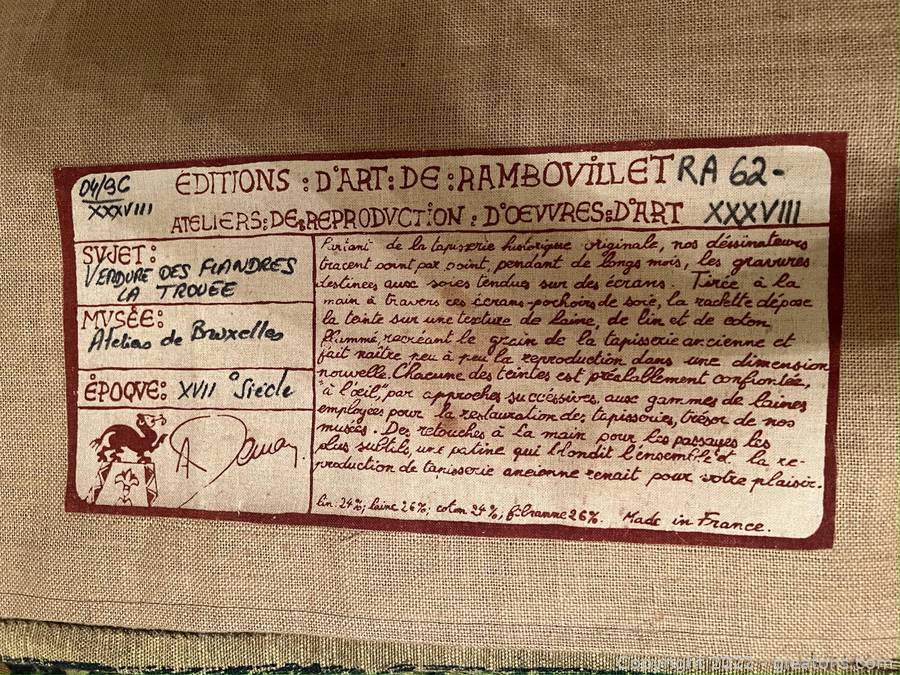 04/9C
XXXVIII
EDITIONS : D'ART : DE : RAMBOVILLET RA 62-
ATELIERS : DE : REPRODVCTION : D'ŒVVRES : D'ART XXXVIII
SVJET :
VERDURE DES FLANDRES
LA TROUEE
MVSÉE :
Ateliers de Bruxelles
ÉPOQVE : XVII° Siécle
Partant de la tapisserie historique originale, nos déssinateurs
tracent point par point, pendant de longs mois, les gravures
destinées aux soies tendues sur des écrans. Tirée à la
main à travers ces écrans-pochoirs de soie, la raclette dépose
la teinte sur une texture de laine, de lin et de coton
flammé, recréant le grain de la tapisserie ancienne et
fait naître peu à peu la reproduction dans une dimension
nouvelle. Chacune des teintes est préalablement confrontée,
"à l'œil", par approches successives, aux gammes de laines
employées pour la restauration des tapisseries, trésor de nos
musées. Des retouches à la main pour les passages les
plus subtils, une patine qui blondit l'ensemble et la re-
production de tapisserie ancienne renait pour votre plaisir.
lin : 24% ; laine 26% ; coton 24% ; fibranne 26%. Made in France.